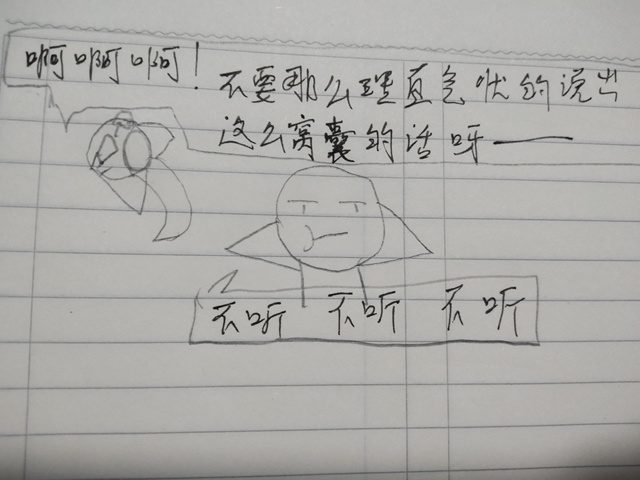 啊啊啊!不要那么理直气状的说出
这么窝囊的话呀——
不听 不听 不听